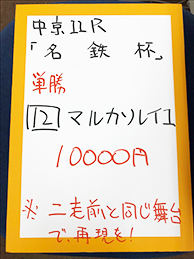 中京11R
「名鉄杯」
単勝
12 マルカソレイユ
10000円
※二走前と同じ舞台
で、再現を!